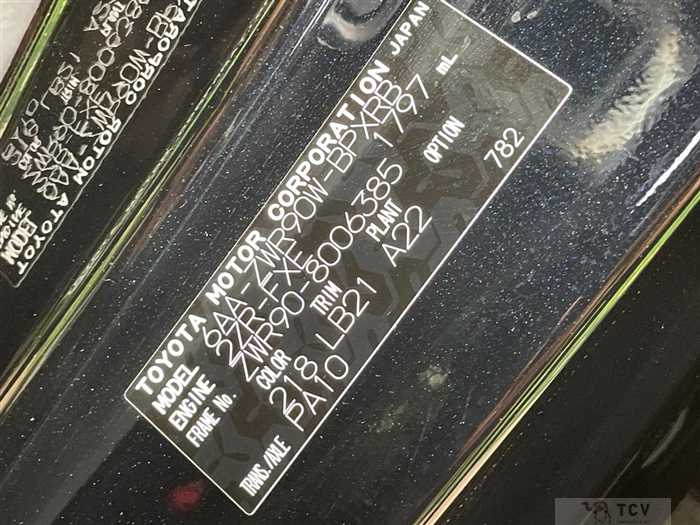 TOYOTA MOTOR CORPORATION JAPAN
MODEL 6AA-ZWR90W-BPXRB
ENGINE 2ZR-FXE 1797 mL
FRAME No. ZWR90-8006385
COLOR TRIM PLANT OPTION
218 LB21 A22 782
TRANS./AXLE PA10
TCV